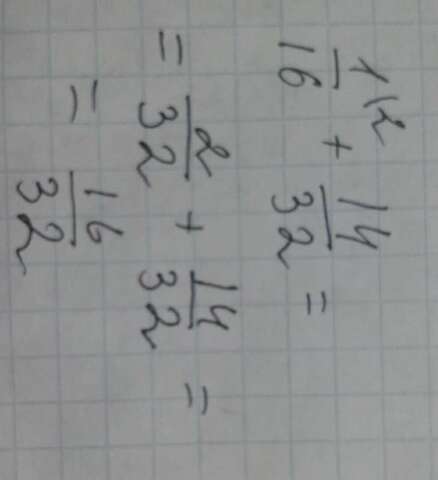 1\2/16 + 14/32 =
= 2/32 + 14/32 =
= 16/32